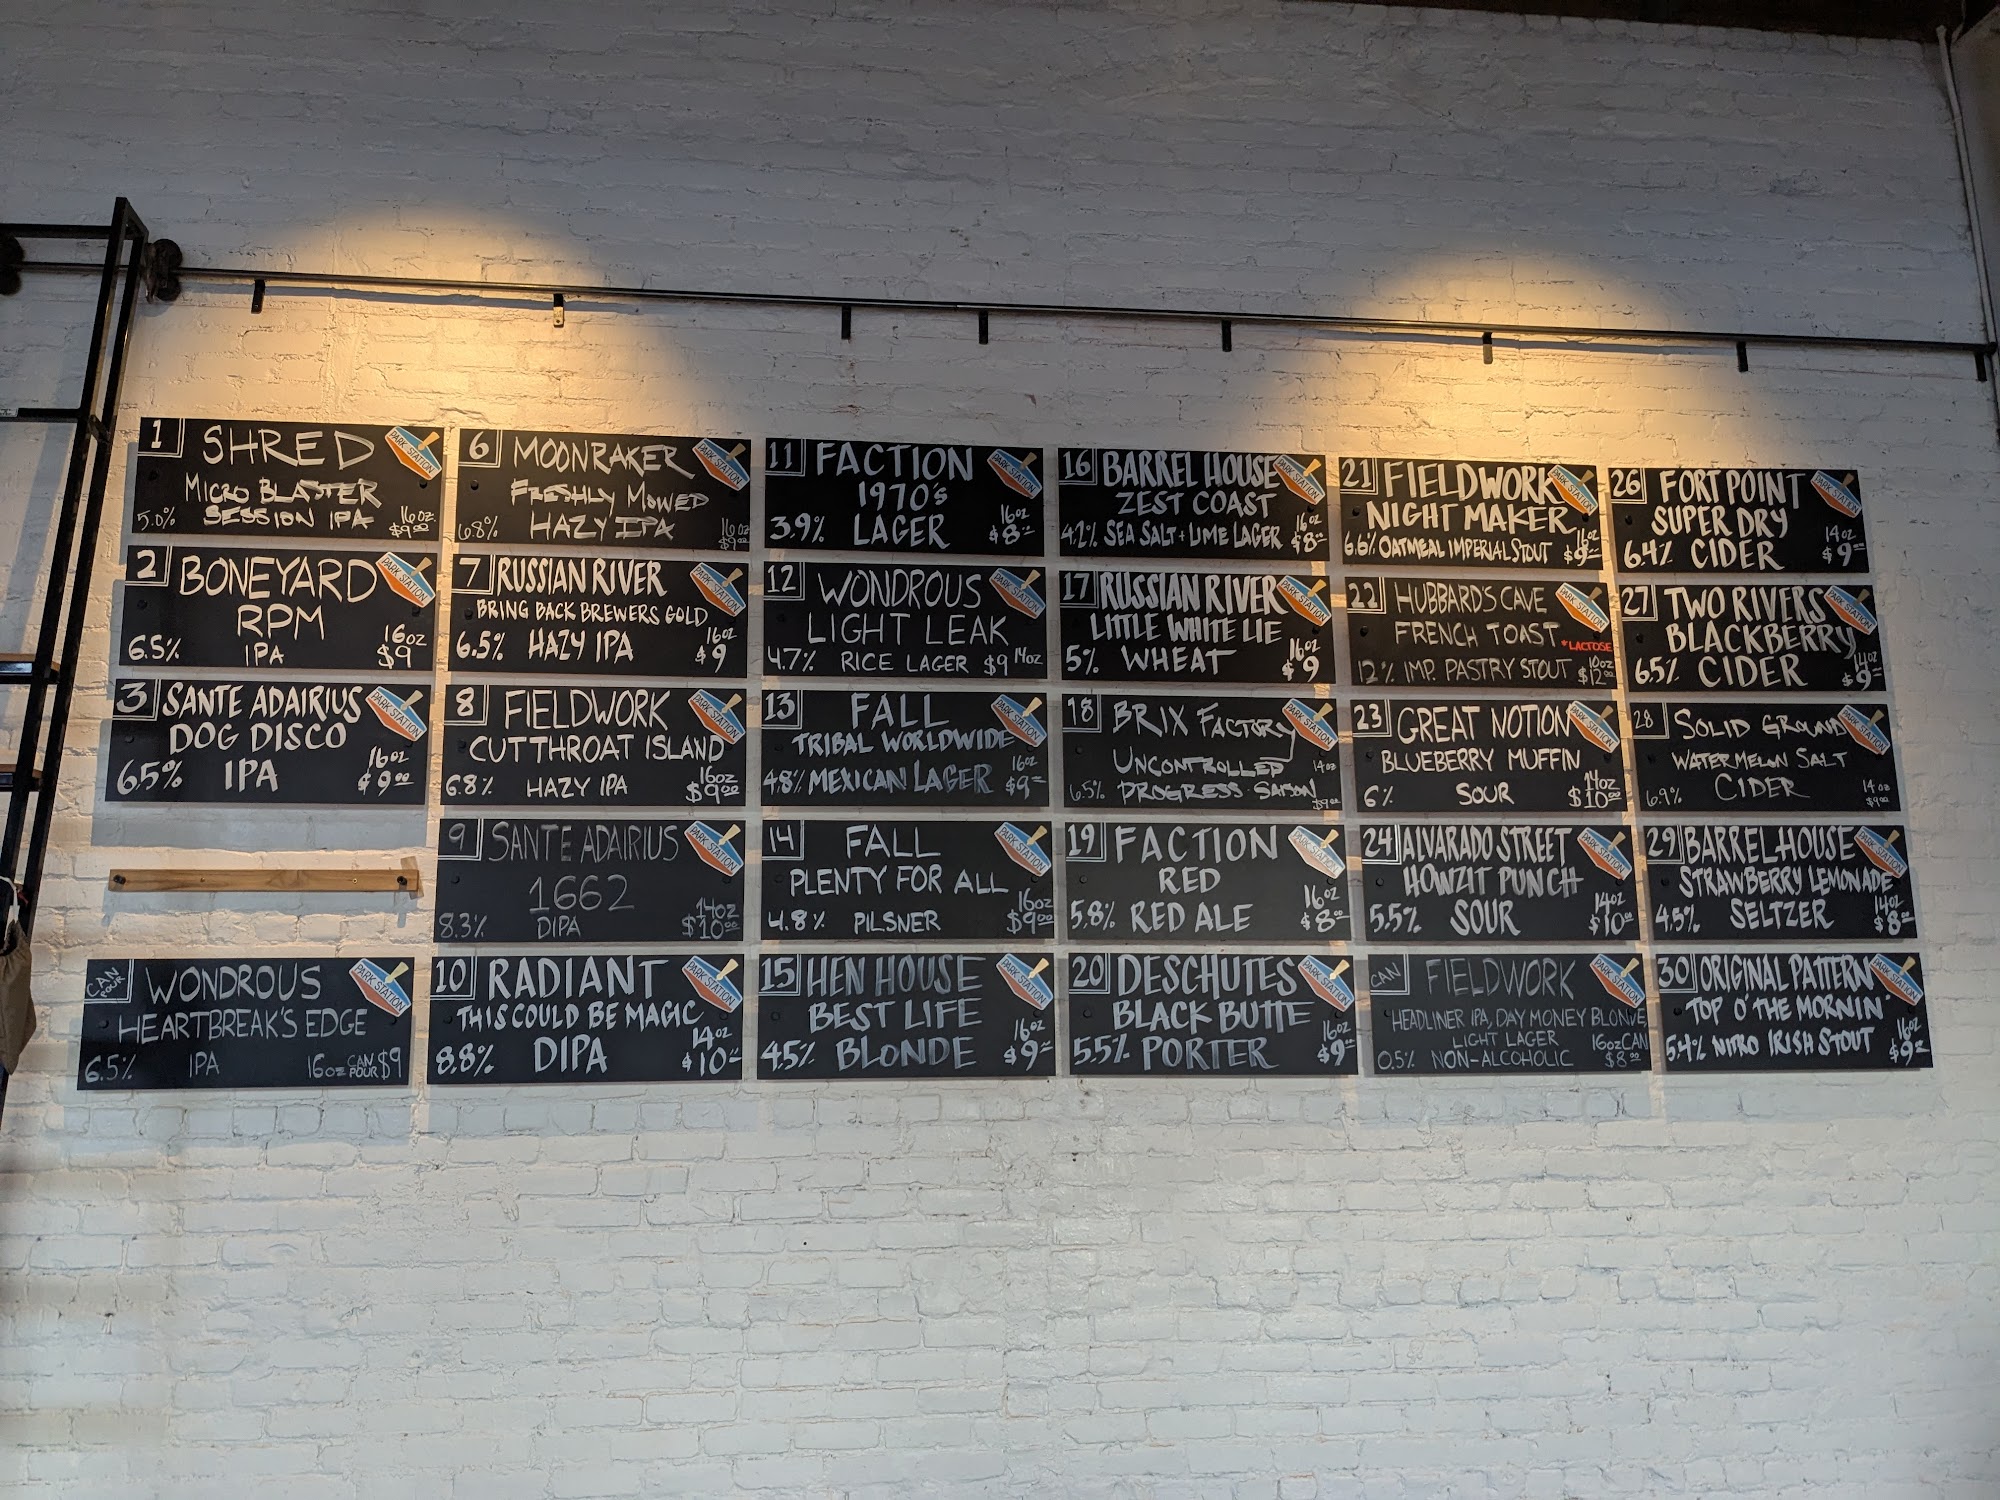 1 SHRED
MICRO BLASTER
SESSION IPA
5.0% 16oz. $9.00
PARK STATION
2 BONEYARD
RPM
6.5% IPA 16oz $9
PARK STATION
3 SANTE ADAIRIUS
DOG DISCO
6.5% IPA 16oz $9.00
PARK STATION
CAN POUR WONDROUS
HEARTBREAK'S EDGE
6.5% IPA 16oz CAN POUR $9
PARK STATION
6 MOONRAKER
FRESHLY MOWED
6.8% HAZY IPA 16oz $9.00
PARK STATION
7 RUSSIAN RIVER
BRING BACK BREWERS GOLD
6.5% HAZY IPA 16oz $9
PARK STATION
8 FIELDWORK
CUTTHROAT ISLAND
6.8% HAZY IPA 16oz $9.00
PARK STATION
9 SANTE ADAIRIUS
1662
8.3% DIPA 14oz $10.00
PARK STATION
10 RADIANT
THIS COULD BE MAGIC
8.8% DIPA 14oz $10
PARK STATION
11 FACTION
1970's
3.9% LAGER 16oz $8
PARK STATION
12 WONDROUS
LIGHT LEAK
4.7% RICE LAGER $9 14oz
PARK STATION
13 FALL
TRIBAL WORLDWIDE
4.8% MEXICAN LAGER 16oz $9
PARK STATION
14 FALL
PLENTY FOR ALL
4.8% PILSNER 16oz $9.00
PARK STATION
15 HEN HOUSE
BEST LIFE
4.5% BLONDE 16oz $9
PARK STATION
16 BARREL HOUSE
ZEST COAST
4.2% SEA SALT + LIME LAGER 16oz $8
PARK STATION
17 RUSSIAN RIVER
LITTLE WHITE LIE
5% WHEAT 16oz $9
PARK STATION
18 BRIX FACTORY
UNCONTROLLED 14oz
6.5% PROGRESS SAISON $9.00
PARK STATION
19 FACTION
RED
5.8% RED ALE 16oz $8
PARK STATION
20 DESCHUTES
BLACK BUTTE
5.5% PORTER 16oz $9
PARK STATION
21 FIELDWORK
NIGHT MAKER
6.6% OATMEAL IMPERIAL STOUT 16oz $9
PARK STATION
22 HUBBARD'S CAVE
FRENCH TOAST *LACTOSE
12% IMP. PASTRY STOUT 10oz $12.00
PARK STATION
23 GREAT NOTION
BLUEBERRY MUFFIN
6% SOUR 14oz $10.00
PARK STATION
24 ALVARADO STREET
HOWZIT PUNCH
5.5% SOUR 14oz $10
PARK STATION
CAN FIELDWORK
HEADLINER IPA, DAY MONEY BLONDE,
LIGHT LAGER 16oz CAN
0.5% NON-ALCOHOLIC $8.00
PARK STATION
26 FORT POINT
SUPER DRY
6.4% CIDER 14oz $9
PARK STATION
27 TWO RIVERS
BLACKBERRY
6.5% CIDER 14oz $9
PARK STATION
28 SOLID GROUND
WATERMELON SALT
6.9% CIDER 14oz $9.00
PARK STATION
29 BARREL HOUSE
STRAWBERRY LEMONADE
4.5% SELTZER 14oz $8
PARK STATION
30 ORIGINAL PATTERN
TOP O' THE MORNIN'
5.4% NITRO IRISH STOUT 16oz $9
PARK STATION